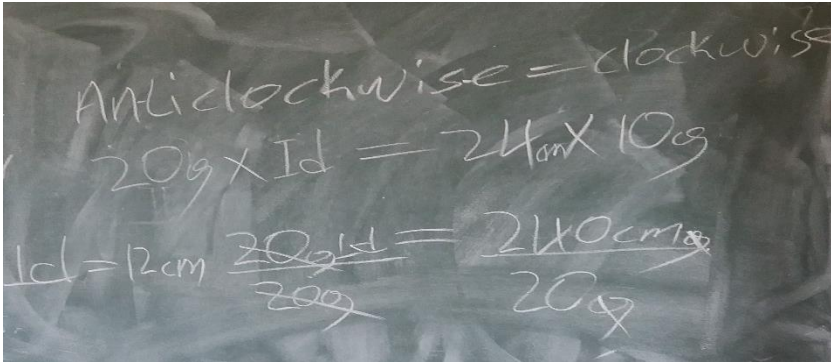 Anticlockwise = clockwise
20g x Id = 24cm x 10g
Id = 12cm 20gId/20g = 240cmg/20g